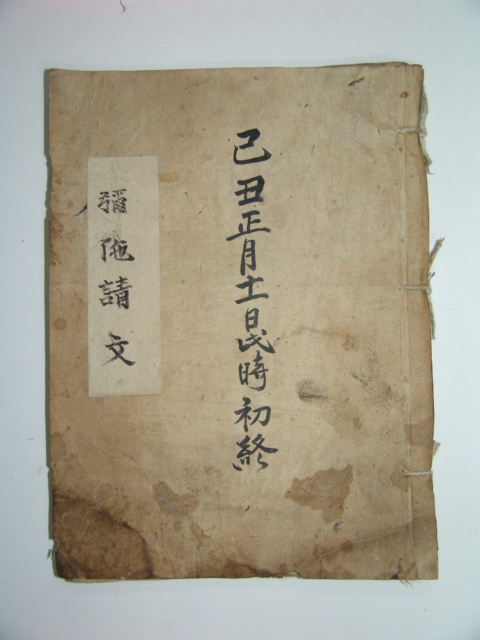 己丑正月十一日民時初終
彌陁請文